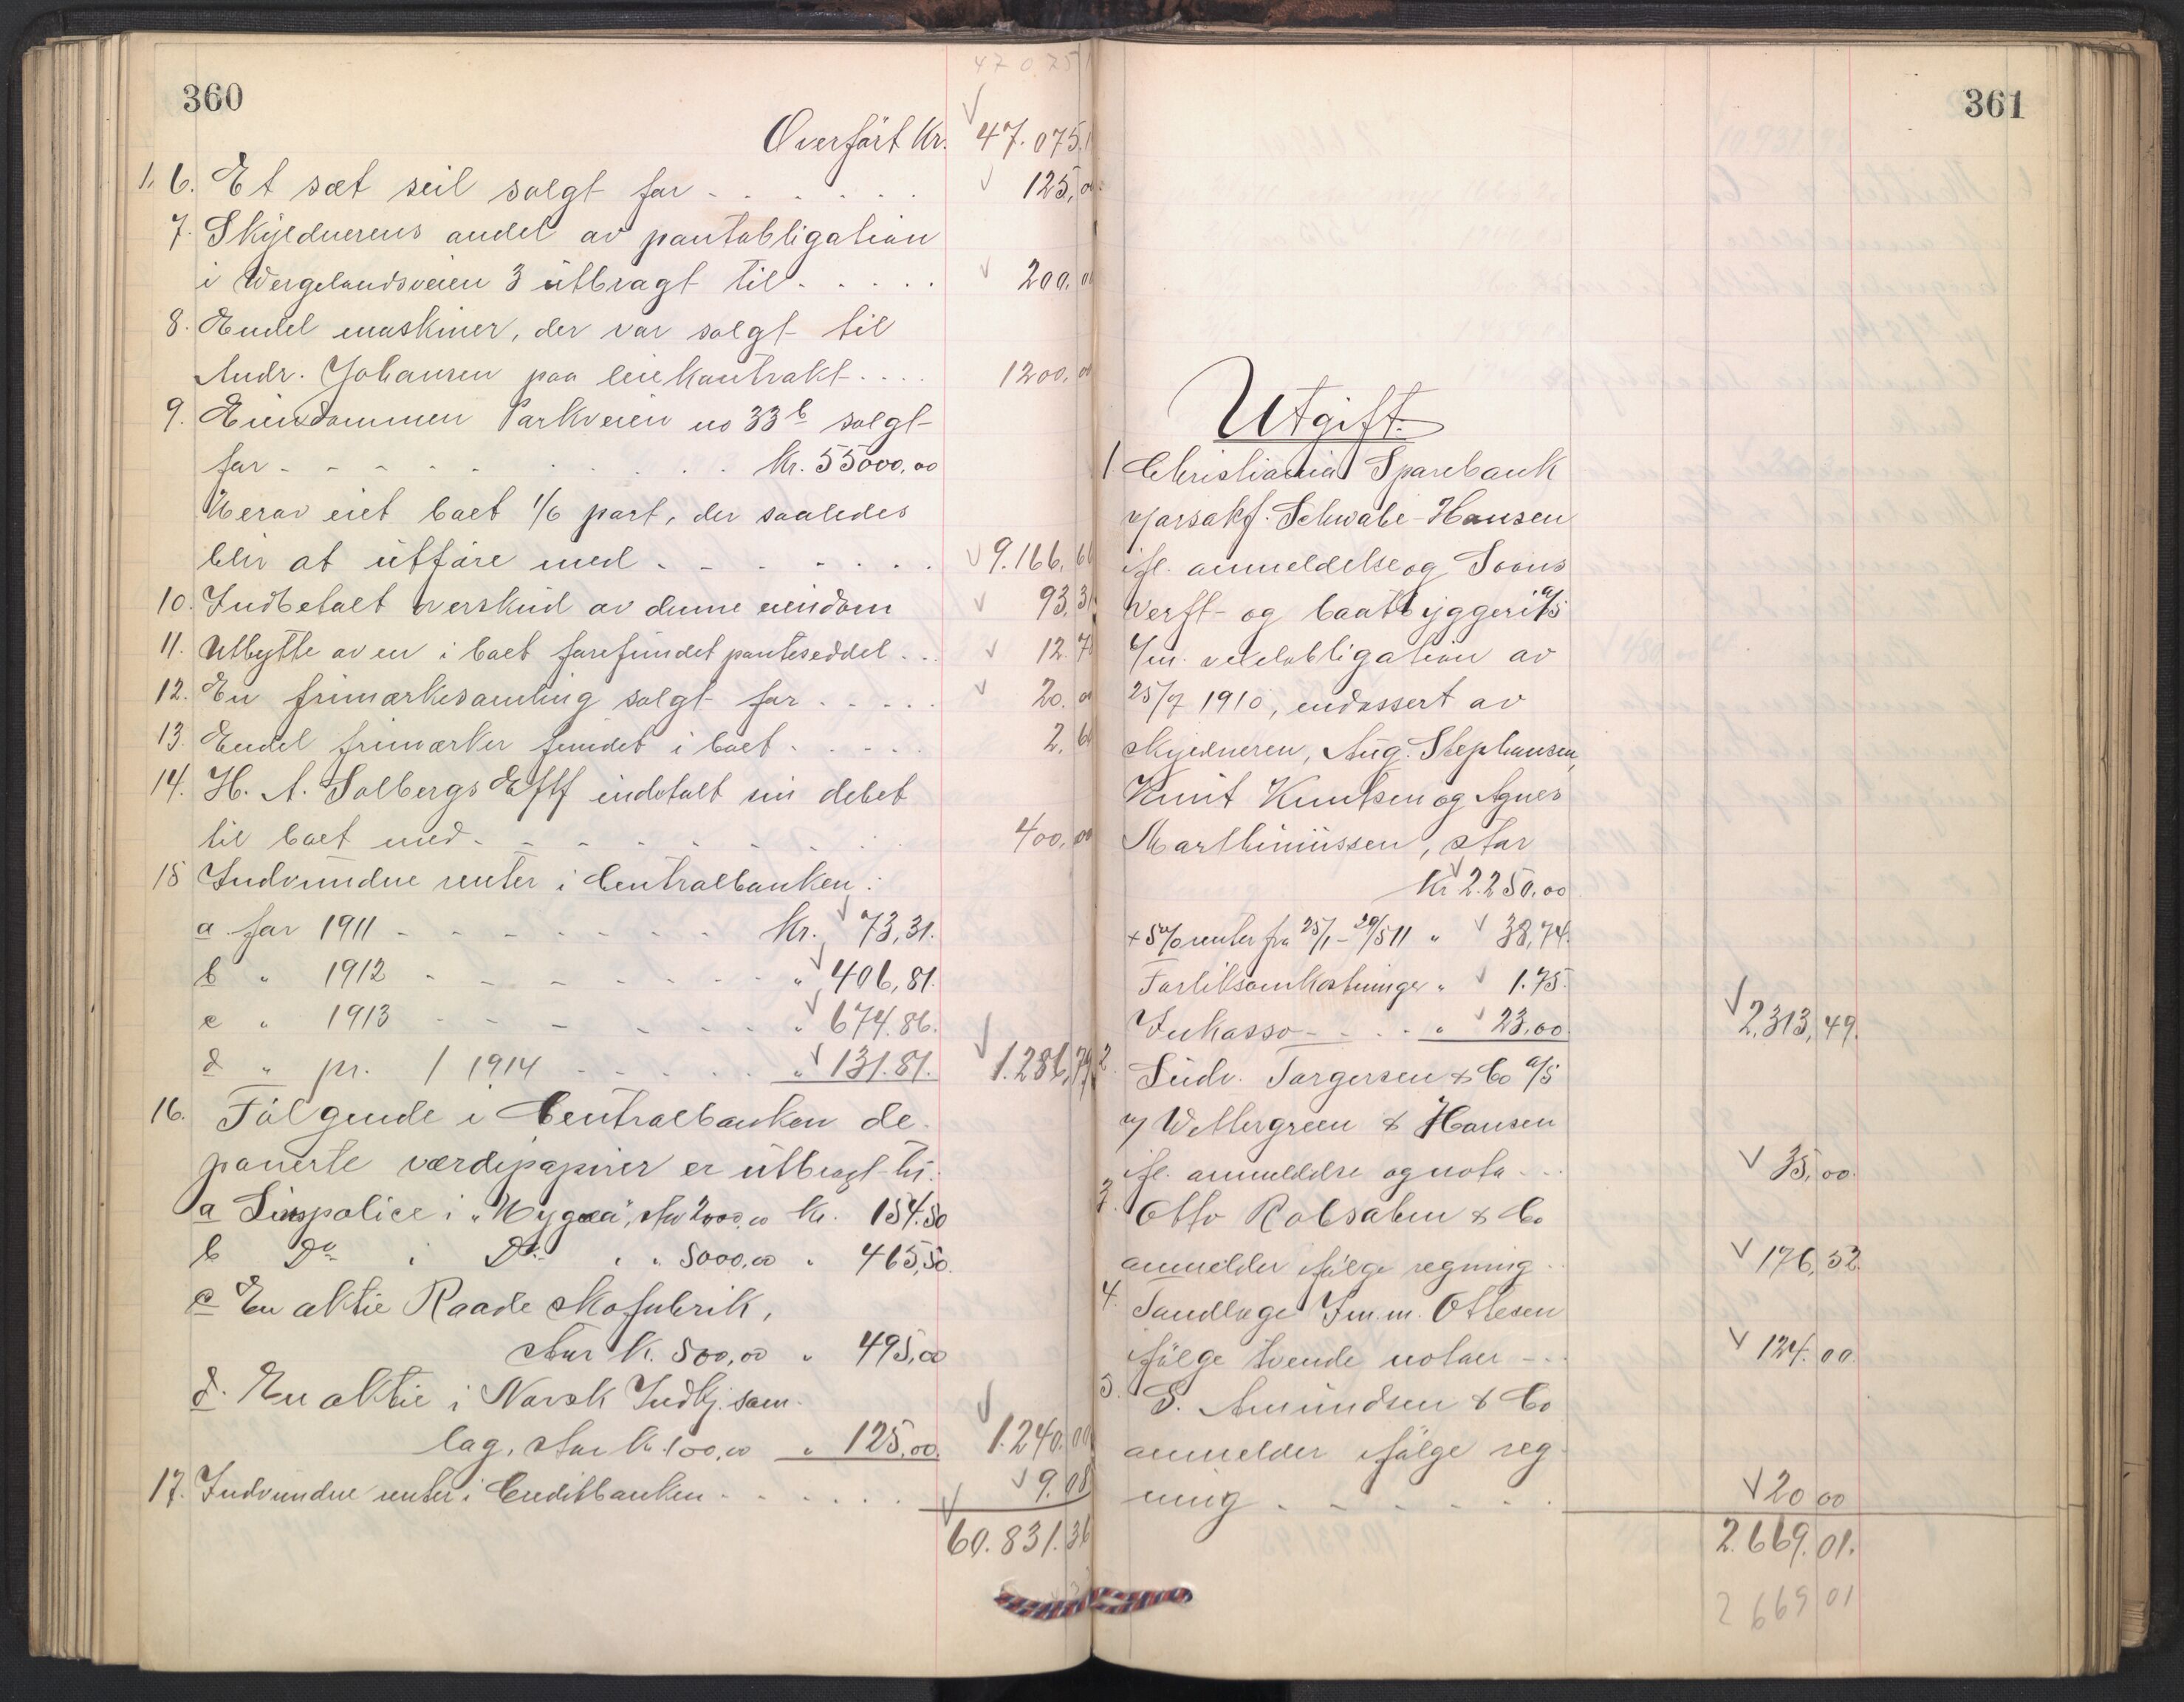 360
47 0 75
Overført Kr. 47.075.1
1, 6. Et sæt seil solgt for - - - - - 125,00
7. Skyldnerens andel av pantobligation
i Wergelandsveien 3 utbragt til - - - - - 200.00
8. Endel maskiner, der var solgt til
Andr. Johansen paa leiekontrakt - - - - 1200.00
9. Eiendommen Parkveien no 33 b solgt
for - - - - - - - - - Kr. 55000.00
Herav eiet boet 1/6 part, der saaledes
blir at utføre med - - - - - - - 9.166,66
10. Indbetalt overskud av denne eiendom 93,31
11. Utbytte av en i boet forefundet panteseddel - - 12.7
12. En frimærkesamling solgt for - - - - - 20.00
13. Endel frimærker fundet i boet - - - - - 2,6
14. H. A. Solbergs Eftf indbetalt sin debet
til boet med - - - - - - - - 400,00
15 Indvundne renter i Centralbanken:
a for 1911 - - - - - - - - Kr. 73,31.
b " 1912 - - - - - - - " 406,81.
c " 1913 - - - - - - - " 674.86.
d " pr. / 1914 - - - - - " 131.81. 1.286,79
16. Følgende i Centralbanken de-
ponerte værdipapirer er utbragt til:
a Livspolice i "Hygæa", stor 2000,00 Kr. 154.50
b Do i Do " " 5000,00 " 465,50.
c En aktie Raade skofabrik,
stor K. 500,00 " 495,00
d. En aktie i Norsk Indkj. sam-
lag, stor Kr. 100,00 " 125.00. 1.240.00
17. Indvundne renter i Creditbanken - - - - - - 9.08
60.831.36
361
Utgift.
1 Christiania Sparebank
v/orsakf. Schwabe-Hansen
ifl. anmeldelse og Soons
verft- og baatbyggeri a/s
4/m. vexelobligation av
25/7 1910, endossert av
skyldneren, Aug. Stephansen,
Knut Knutsen og Agnes
Marthiniussen, stor
Kr 2.250.00
+ 5% renter fra 25/1 - 29/5 11 " 38,74.
Forliksomkostninger " 1.75.
Inkasso - - - - " 23.00 2.313,49.
2. Ludv. Torgersen & Co a/s
v/ Wettergreen & Hansen
ifl. anmeldelse og nota - - - 35,00.
3. Otto Robsahm & Co
anmelder ifølge regning - - 176,52
4. Tandlæge Imm. Ottesen
ifølge tvende notaer - - - 124.00.
5. S. Amundsen & Co
anmelder ifølge reg-
ning - - - - - - - 20 00
2.669.01.
2 669 01